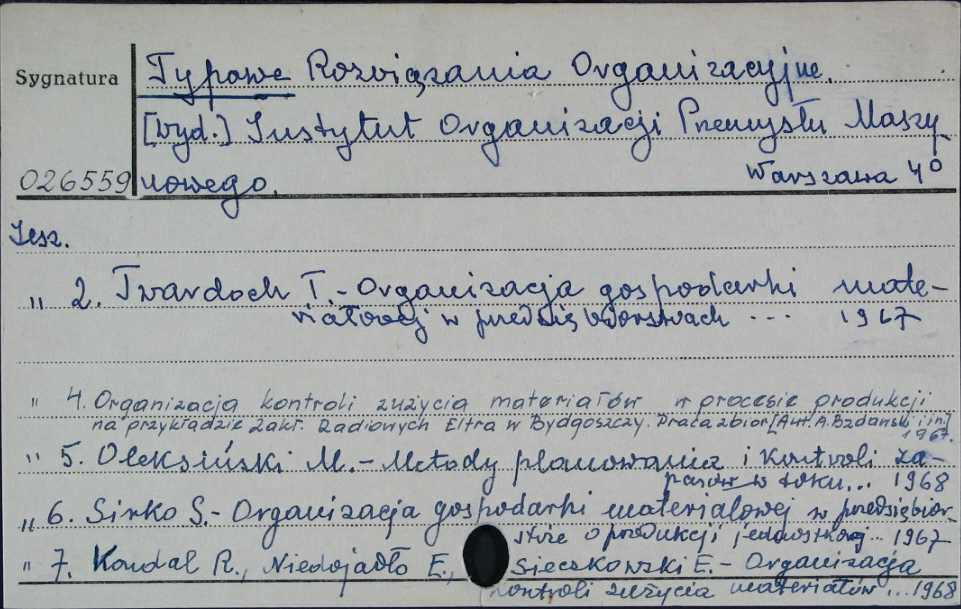 Sygnatura
Typowe Rozwiązania Organizacyjne.
[wyd.] Instytut Organizacji Przemysłu Maszy
026559 nowego. Warszawa 4°
Zesz.
" 2. Twardoch T. - Organizacja gospodarki mate-
riałowej w przedsiębiorstwach ... 1967
" 4. Organizacja kontroli zużycia materiałów w procesie produkcji
na przykładzie Zakł. Radiowych Eltra w Bydgoszczy. Praca zbior. [Aut. A. Bzdański i in.]
1967.
" 5. Oleksiński M. - Metody planowania i kontroli za-
pasów w toku... 1968
" 6. Sirko S. - Organizacja gospodarki materiałowej w przedsiębior-
stwie o produkcji jednostkowej... 1967
" 7. Kondal R., Niedojadło E., Sieczkowski E. - Organizacja
kontroli zużycia materiałów... 1968